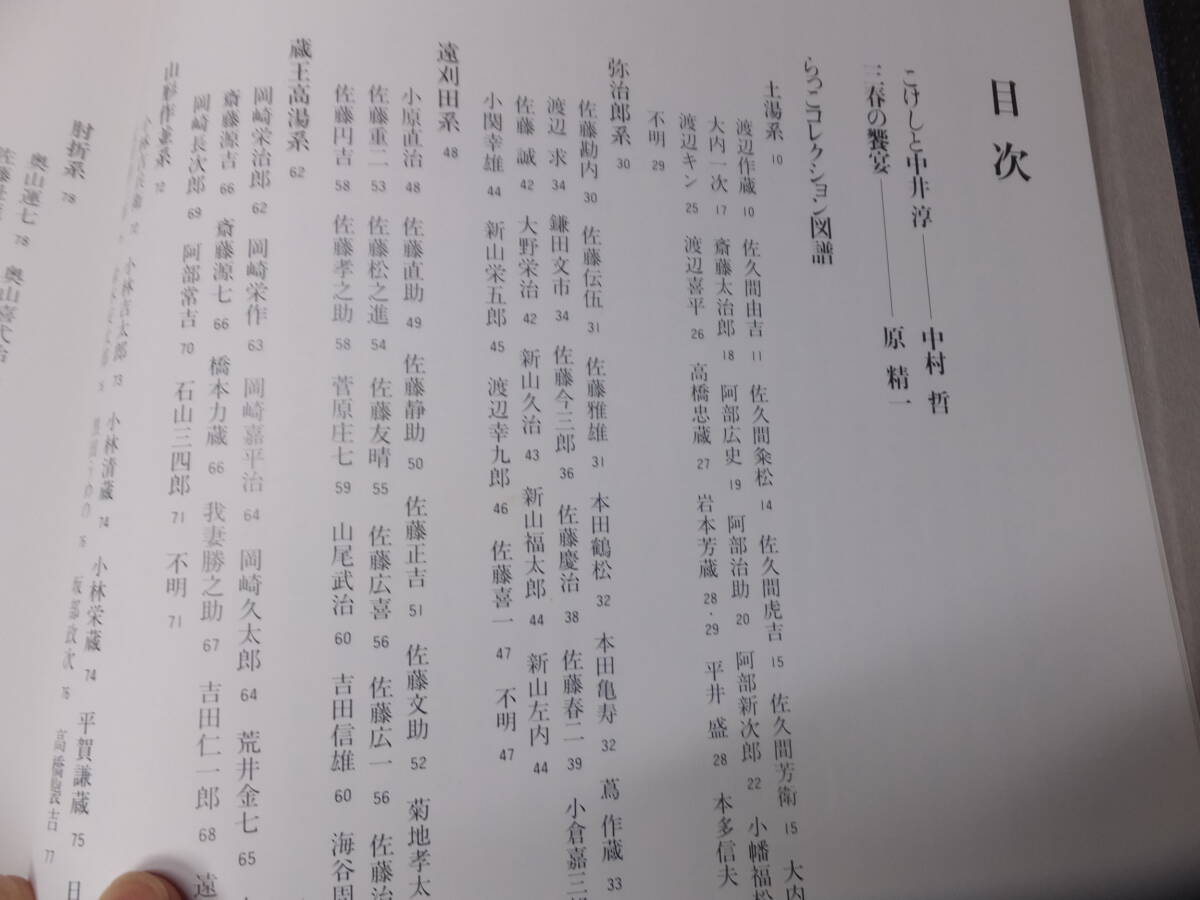 目次
こけしと中井 淳――――中村 哲
三春の饗宴――――原 精一
らっこコレクション図譜
土湯系 10
渡辺作蔵 10 佐久間由吉 11 佐久間粂松 14 佐久間虎吉 15 佐久間芳衛 15 大内
大内一次 17 斎藤太治郎 18 阿部広史 19 阿部治助 20 阿部新次郎 22 小幡福松
渡辺キン 25 渡辺喜平 26 高橋忠蔵 27 岩本芳蔵 28・29 平井 盛 28 本多信夫
不明 29
弥治郎系 30
佐藤勘内 30 佐藤伝伍 31 佐藤雅雄 31 本田鶴松 32 本田亀寿 32 蔦 作蔵 33
渡辺 求 34 鎌田文市 34 佐藤今三郎 36 佐藤慶治 38 佐藤春二 39 小倉嘉三郎
佐藤 誠 42 大野栄治 42 新山久治 43 新山福太郎 44 新山左内 44
小関幸雄 44 新山栄五郎 45 渡辺幸九郎 46 佐藤喜一 47 不明 47
遠刈田系 48
小原直治 48 佐藤直助 49 佐藤静助 50 佐藤正吉 51 佐藤文助 52 菊地孝太
佐藤重二 53 佐藤松之進 54 佐藤友晴 55 佐藤広喜 56 佐藤広一 56 佐藤治
佐藤円吉 58 佐藤孝之助 58 菅原庄七 59 山尾武治 60 吉田信雄 60 海谷周
蔵王高湯系 62
岡崎栄治郎 62 岡崎栄作 63 岡崎嘉平治 64 岡崎久太郎 64 荒井金七 65
斎藤源吉 66 斎藤源七 66 橋本力蔵 66 我妻勝之助 67 吉田仁一郎 68 遠
岡崎長次郎 69 阿部常吉 70 石山三四郎 71 不明 71
山形作並系 72
小林吉太郎 73 小林清蔵 74 小林栄蔵 74 平賀謙蔵 75 日
76 76 77
肘折系 78
奥山運七 78 奥山喜代治